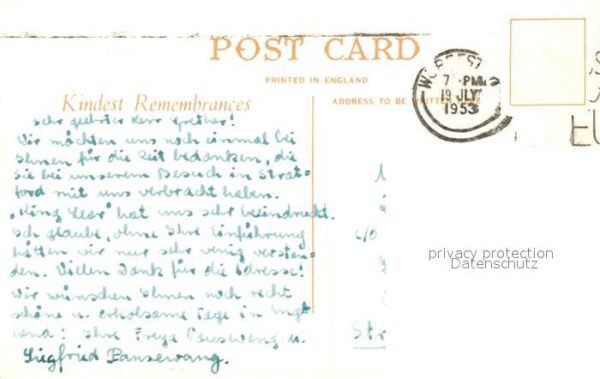 POST CARD
PRINTED IN ENGLAND
Kindest Remembrances
ADDRESS TO BE WRITTEN HERE
7 PM
19 JLY
1953
Sehr geehrter Herr
Wir möchten uns noch einmal bei
Ihnen für die Zeit bedanken, die
Sie bei unserem Besuch in Strat-
ford mit uns verbracht haben.
„King Lear" hat uns sehr beeindruckt.
Ich glaube, ohne Ihre Einführung
hätten wir nur sehr wenig verstan-
den. Vielen Dank für die Adresse!
Wir wünschen Ihnen noch recht
schöne u. erholsame Tage in Eng-
land! Ihre Freya u.
Siegfried Pausewang.
c/o
Str
privacy protection
Datenschutz